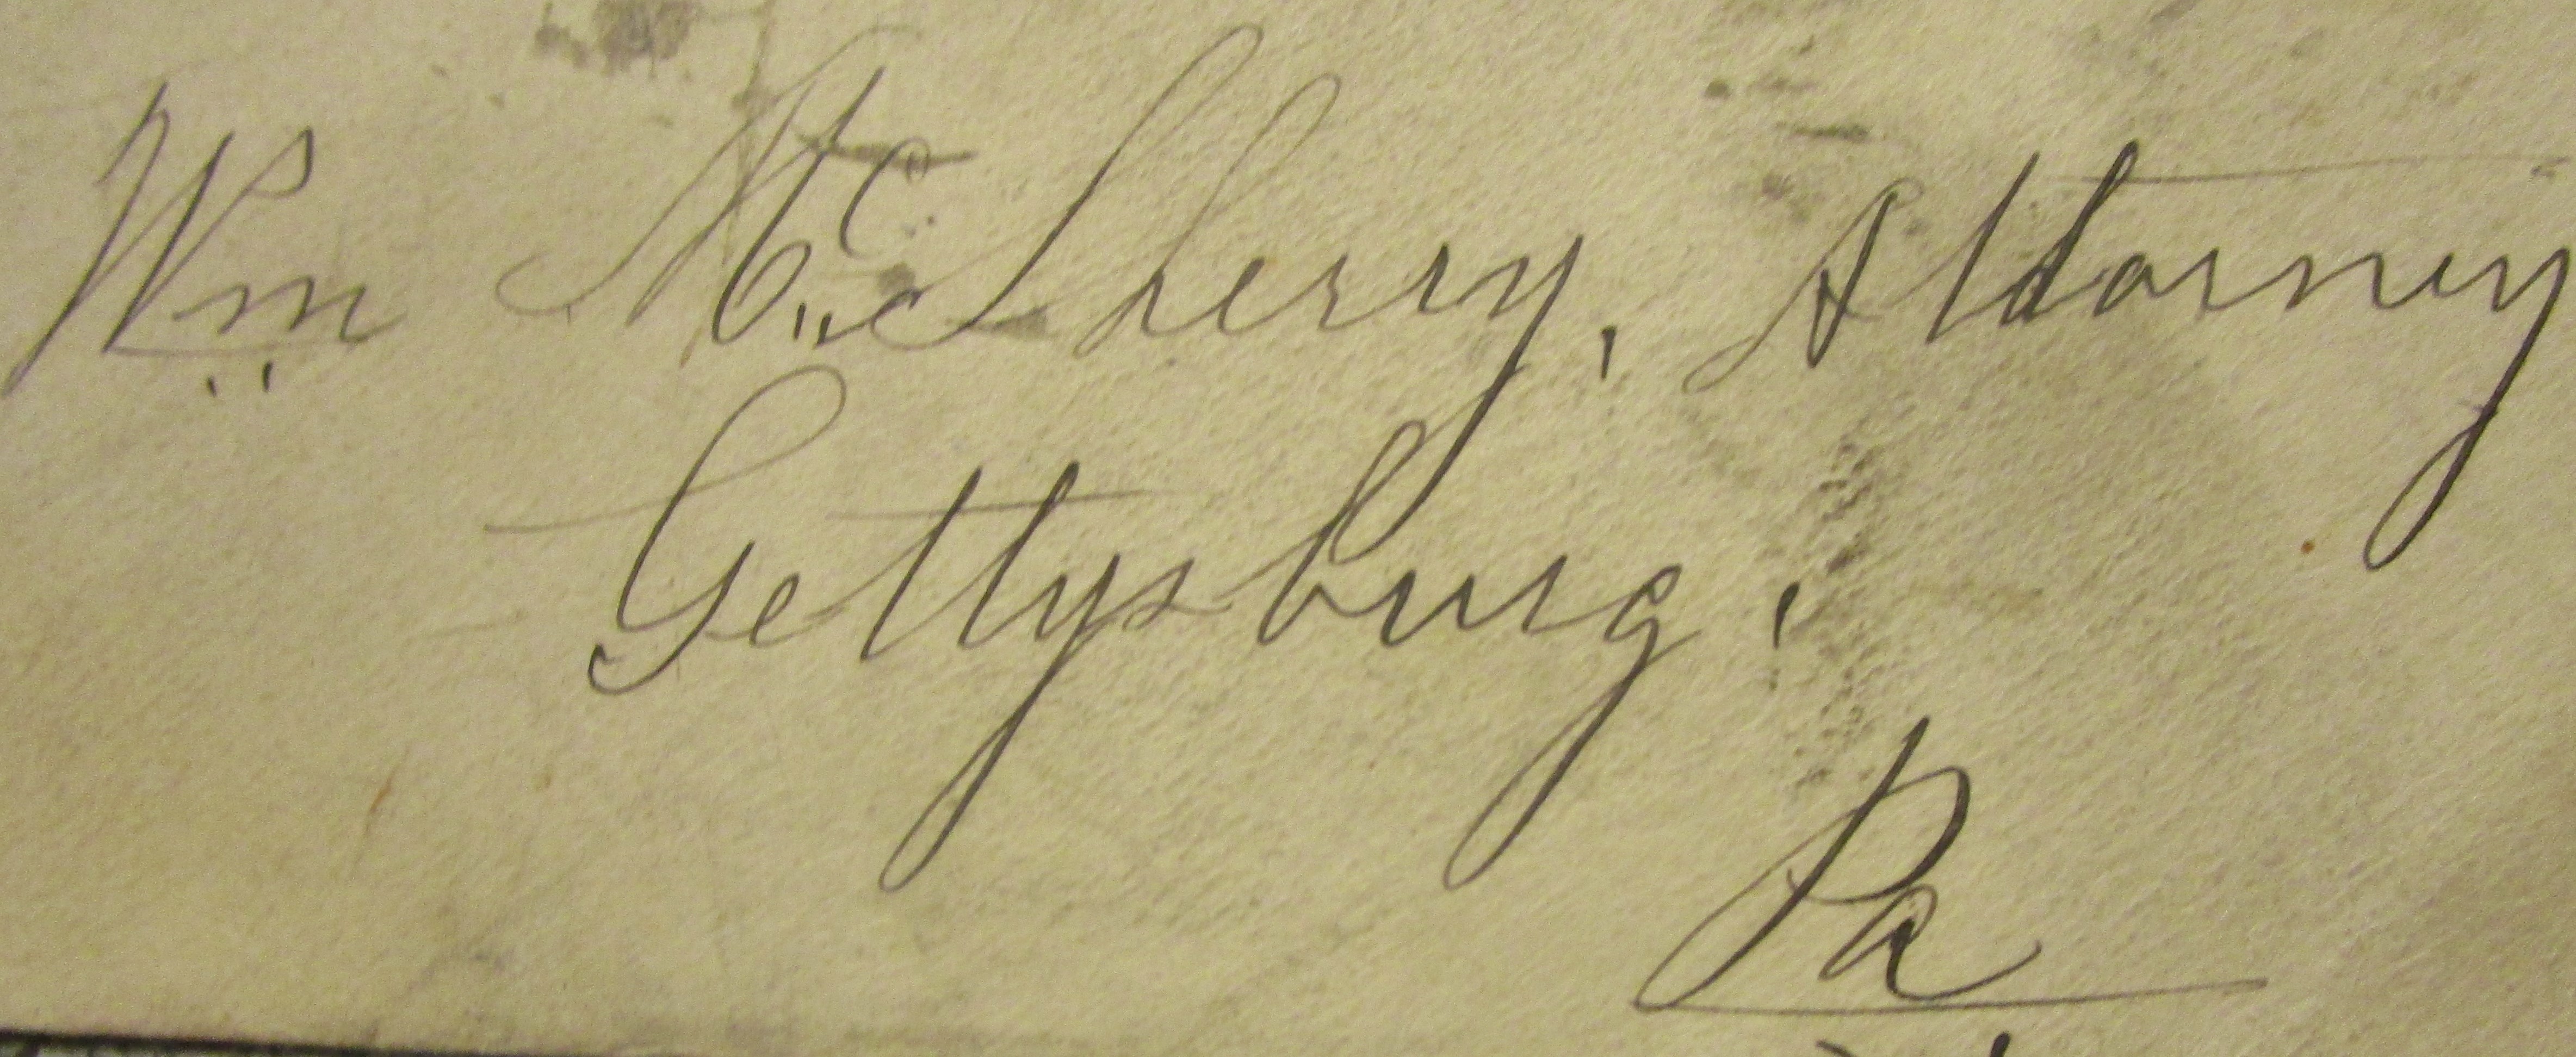 Wm McSherry, Attorney
Gettysburg,
Pa